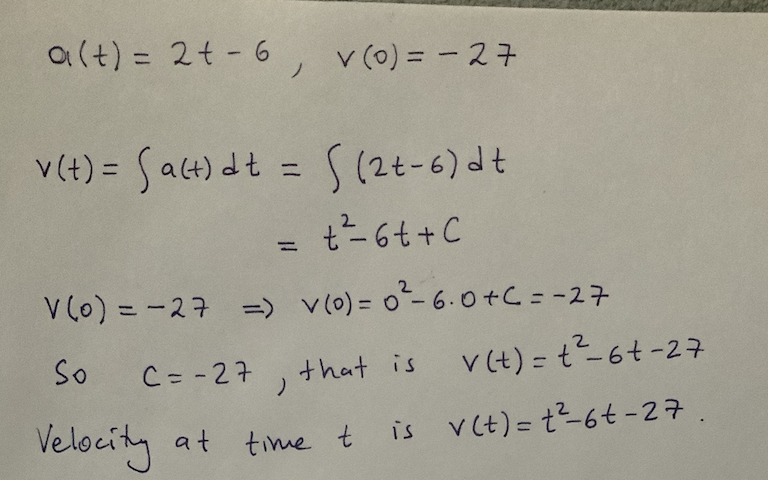 a(t) = 2t - 6 , v(0) = - 27
v(t) = ∫ a(t) dt = ∫ (2t-6) dt
= t²- 6t + C
V(0) = -27 => v(0) = 0²- 6.0 + C = -27
So C = -27 , that is v(t) = t²- 6t - 27
Velocity at time t is v(t) = t²- 6t - 27 .